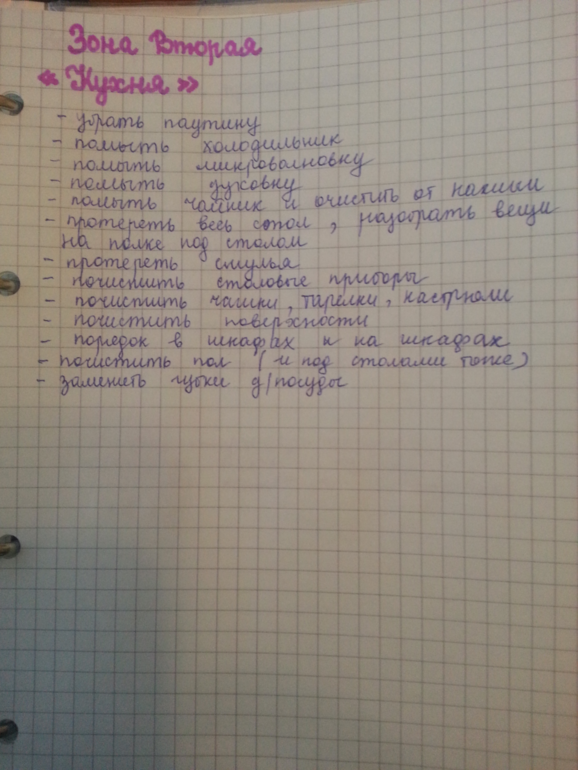 Зона Вторая
« Кухня »
- убрать паутину
- помыть холодильник
- помыть микроволновку
- помыть духовку
- помыть чайник и очистить от накипи
- протереть весь стол, разобрать вещи
на полке под столом
- протереть стулья
- почистить столовые приборы
- почистить чашки, тарелки, кастрюли
- почистить поверхности
- порядок в шкафах и на шкафах
- почистить пол (и под столами тоже)
- заменить губки д/посуды